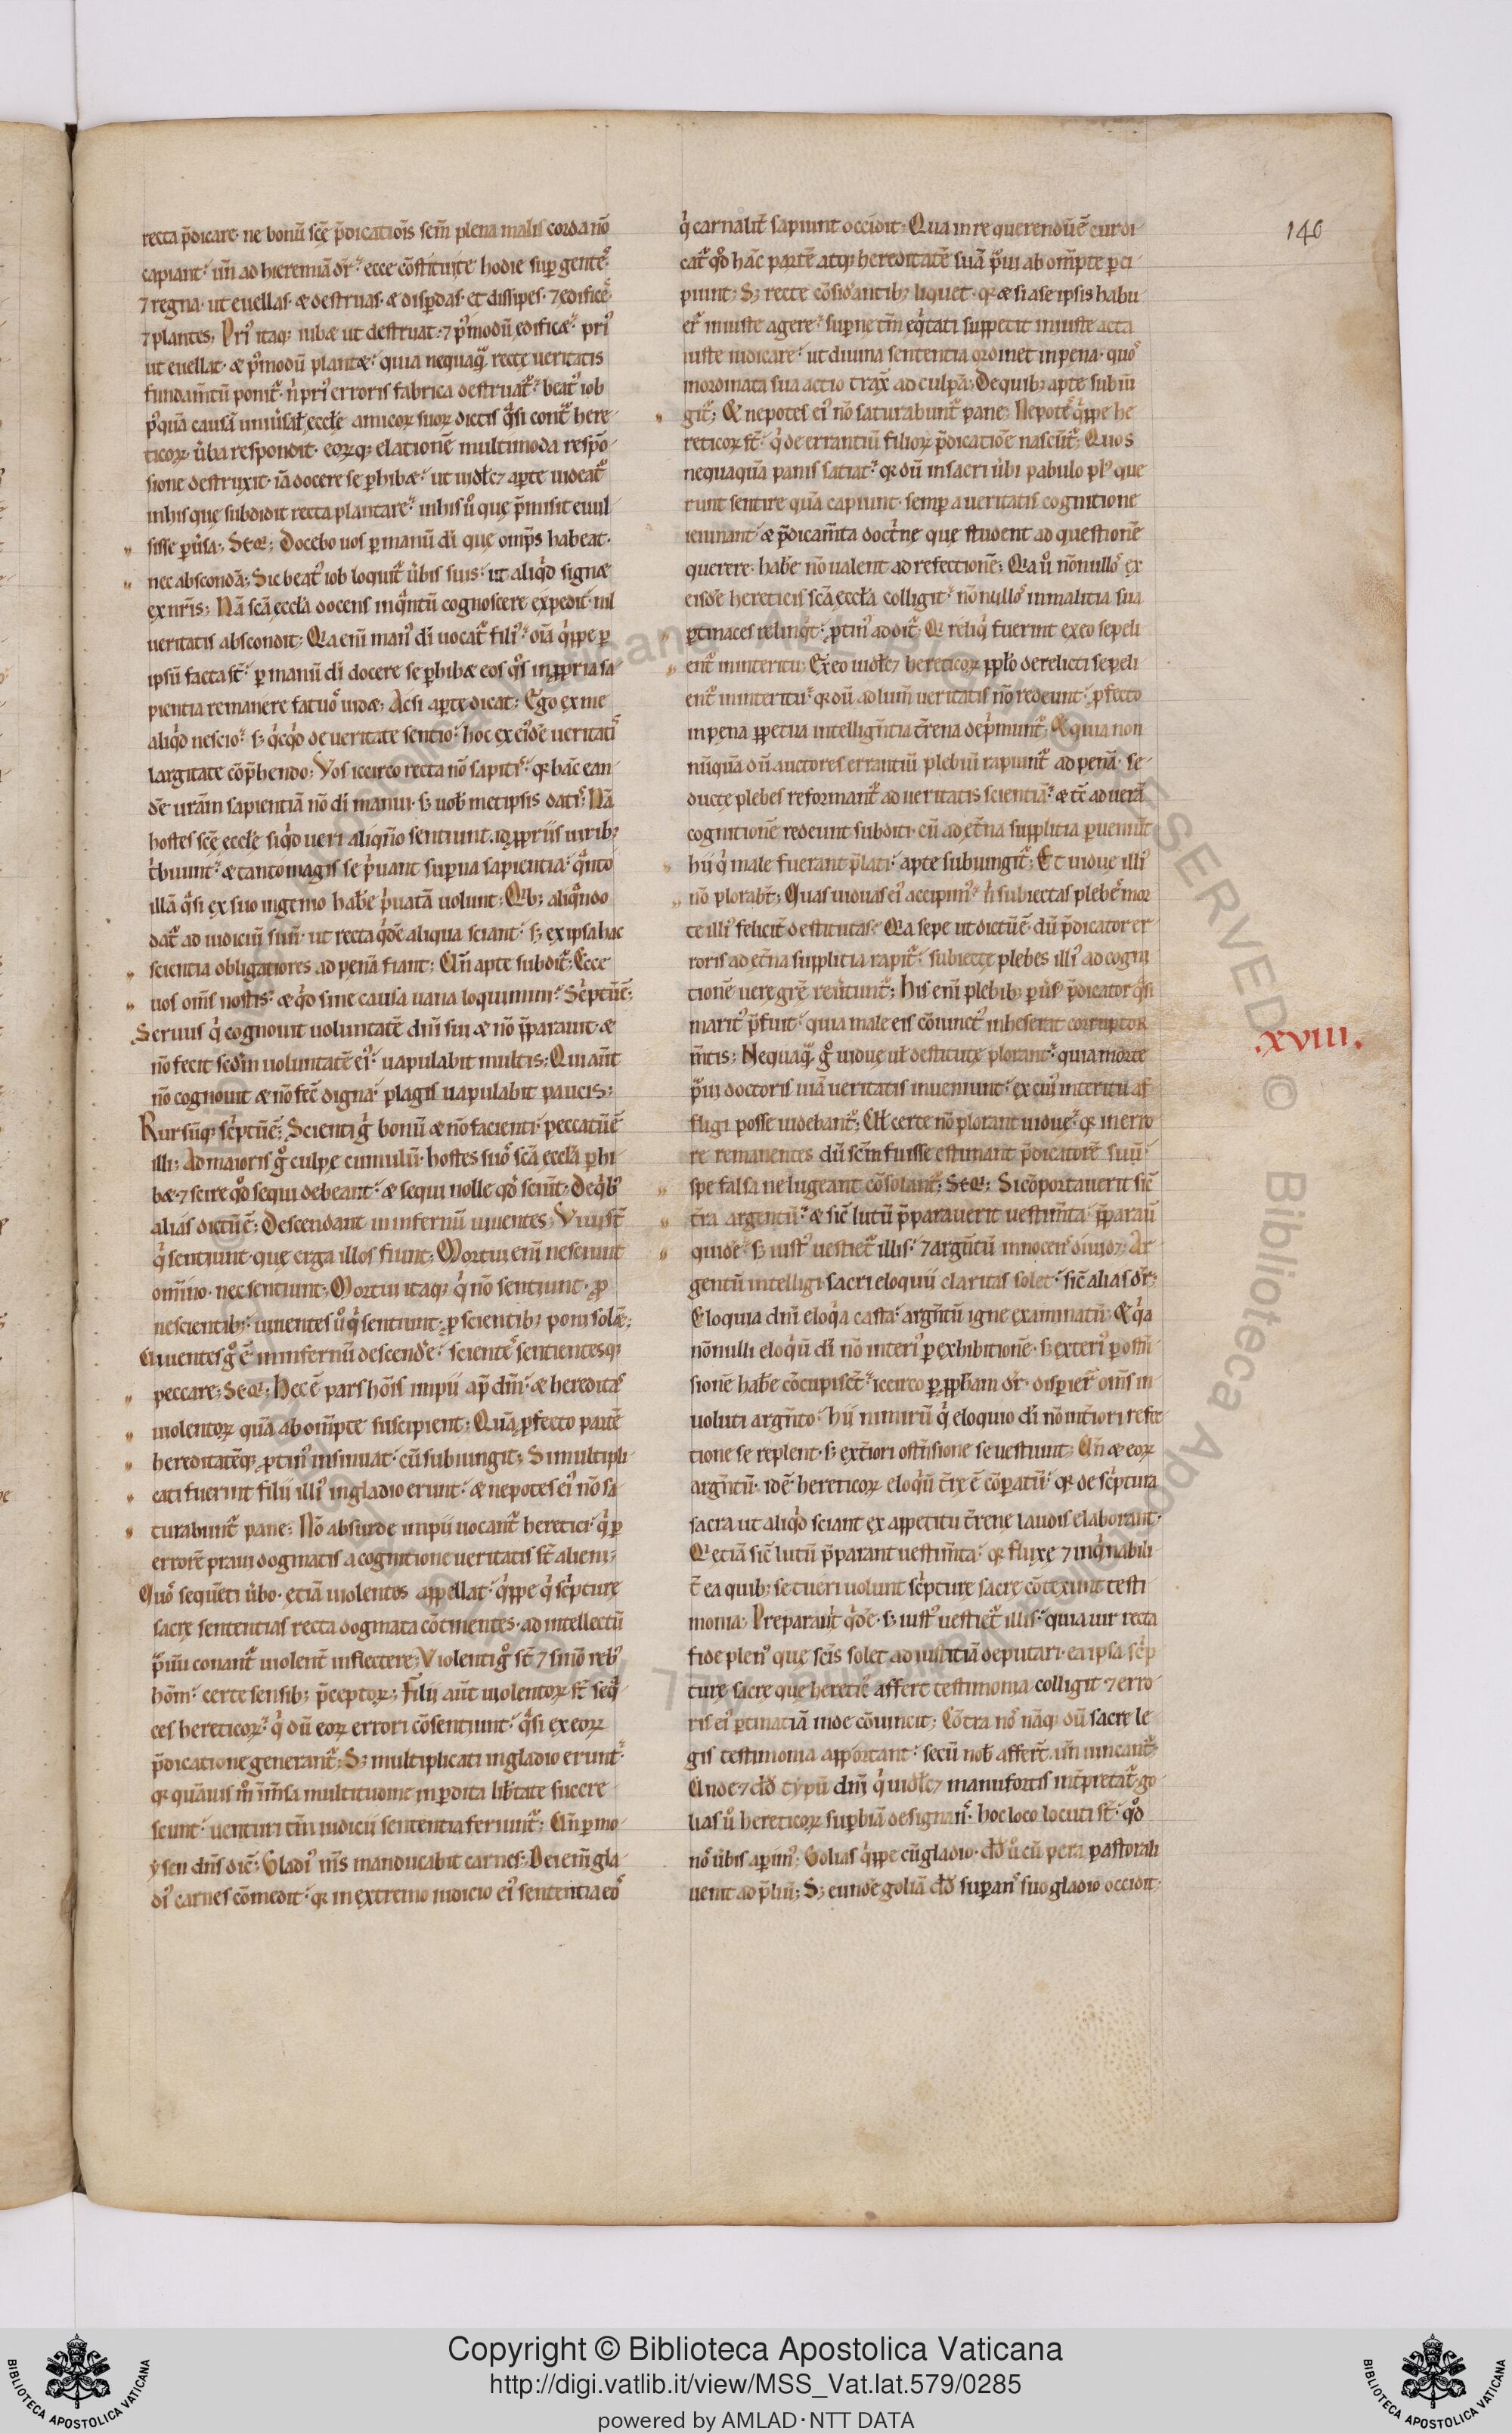 recta p̄dicare· ne bonū scē p̄dicatiōis sem̄ plena malis corda nō
capiant· un̄ ad hieremiā dr̄· ecce cōstitui te hodie sup gentes
⁊ regna· ut euellas· & destruas· & disp̱das· et dissipes· ⁊ edifices
⁊ plantes; Pri᷒ itaq; iub& ut destruat· ⁊ p᷒modū edific&· pri᷒
ut euellat· & p᷒modū plant&· quia nequaq̄ recte ueritatis
fundam̄tū ponit᷑· n̄ pri᷒ erroris fabrica destruat᷑· beat᷒ iob
p᷒quā causā uniūsal eccl̄e amicoꝝ suoꝝ dictis q̄si cont᷑ here
ticoꝝ ūba respondit· eoꝝq; elationē multimoda respō
sione destruxit· iā docere se ꝑhib&· ut uidel⁊ aꝑte uideat᷑
in his que subdidit recta plantare· in his ū que p̄misit euul
sisse ꝑūsa; Seq̄· Docebo uos ꝑ manū dī que omp̄s habeat·
nec abscondā; Sic beat᷒ iob loquit᷑ ūbis suis· ut aliqͥd sign&
ex nr̄is; Nā scā eccl̄a docens inq̄ntū cognoscere expedit· nil
ueritatis abscondit; Quia enī man᷒ dī uocat᷑ fili᷒· oīa qͥppe ꝑ
ipsū facta st̄· ꝑ manū dī docere se ꝑhib& eos q᷒s in ꝓpria sa
pientia remanere fatuos uid&; Ac si aꝑte dicat; Ego ex me
aliqͥd nescio· s; qͥcqͥd de ueritate sentio· hoc ex ei᷒dē ueritatis
largitate cōp̄hendo; Vos iccirco recta nō sapitis· q̄ hāc ean
dē urām sapientiā nō dī manui· s; uob̄ metipsis datis; Nā
hostes scē eccl̄e siqͥd ueri aliqn̄o sentiunt· id ꝓpriis uirib;
tͥbuunt· & tanto magis se pͥuant supna sapientia· q̄nto
illā q̄si ex suo ingenio hab̄e pͥuatā uolunt; Qͥb; aliq̄ndo
dat᷑ ad iudiciū suū· ut recta qͥdē aliqua sciant· s; ex ipsa hac
scientia obligatiores ad penā fiant; Un̄ apte subdit᷑; Ecce
uos om̄s nostis· & qͥd sine causa uana loquimini· Scͥptū ē;
Seruus qͥ cognouit uoluntatē dn̄i sui & nō p̄parauit· &
nō fecit scd̄m uoluntatē ei᷒· uapulabit multis; Qui aūt
nō cognouit & nō fec̄ digna· plagis uapulabit paucis;
Rursūq; scͥptū ē; Scienti gͥ bonū & nō facienti· peccatū ē
illi; Ad maioris gͦ culpe cumulū· hostes suos scā eccl̄a ꝑhi
b&· ⁊ scire qͦd sequi debeant· & sequi nolle qͦd sciūt; De qͥb᷒
alias dictū ē; Descendant in infernū uiuentes; Viui st̄
qͥ sentiunt· que erga illos fiunt; Mortui enī nesciunt
om̄ino· nec sentiunt; Mortui itaq; qͥ nō sentiunt· ꝓ
nescientib;· uiuentes ū qͥ sentiunt· ꝓ scientib; poni solēt;
Viuentes gͦ ē in infernū descendē· scientes sentientesq;
peccare; Seq̄; Hec ē pars hōis impii ap̄ dm̄· & hereditas
uiolentoꝝ quā ab om̄pte suscipient; Quā ꝓfecto partē
hereditatēq; ꝓtin᷒ insinuat· cū subiungit; Si multipli
cati fuerint filii illi᷒ in gladio erunt· & nepotes ei᷒ nō sa
turabunt᷑ pane; Nō absurde impii uocant᷑ heretici· qͥ ꝑ
errorē praui dogmatis a cognitione ueritatis st̄ alieni·
Quos sequēti ūbo· etiā uiolentos appellat· qͥppe qͥ scͥpture
sacre sententias recta dogmata cōtinentes· ad intellectū
p̄uū conant᷑ uiolent̄ inflectere; Violenti gͦ st̄ ⁊ si nō reb᷒
hōm̄· certe sensib; p̄ceptoꝝ; Filii aūt uiolentoꝝ st̄ seq̄
ces hereticoꝝ· qͥ dū eoꝝ errori cōsentiunt· q̄si ex eoꝝ
p̄dicatione generant᷑; S; multiplicati in gladio erunt·
q̄ quāuis m° im̄sa multitudine in ꝑdita lib̄tate succre
scunt· uenturi tm̄ iudicii sententia feriunt᷑; Un̄ ꝑ mo
ysen dn̄s dic̄; Gladi᷒ m̄s manducabit carnes; Dei enī gla
di᷒ carnes cōmedit· q̄ in extremo iudicio ei᷒ sententia eos
qͥ carnalit̄ sapiunt occidit; Qua in re querendū ē cur di
cat᷑ qͦd hāc partē atq; hereditatē suā p̄ui ab om̄pte ꝑci
piunt; S; recte cōsidantib; liquet· q̄ & si a se ipsis habu
er̄ iniuste agere· supne tm̄ eqͥtati suppetit iniuste acta
iuste iudicare· ut diuina sententia ordinet in pena· quos
inordinata sua actio trax̄ ad culpā; De quib; apte subiū
git᷑; Et nepotes ei᷒ nō saturabunt᷑ pane; Nepotes qͥppe he
reticoꝝ st̄· qͥ de errantiū filioꝝ p̄dicatiōe nascūt᷑; Quos
nequaquā panis satiat· q̄ dū in sacri ūbi pabulo pl᷒ que
runt sentire quā capiunt· semꝑ a ueritatis cognitione
ieiunant· & p̄dicam̄ta doctͥne que student ad questionē
querere· hab̄e nō ualent ad refectionē; Quia ū nōnullos ex
eisdē hereticis scā eccl̄a colligit· nōnullos in malitia sua
ꝑtinaces relinqͥt· ꝓtin᷒ addit; Qͥ reliqͥ fuerint ex eo sepeli
ent᷑ in interitu; Ex eo uidel⁊ hereticoꝝ ppl̄o derelicti sepeli
ent᷑ in interitu· q̄ dū ad lum̄ ueritatis nō redeunt· ꝓfecto
in pena ꝑpetua intellign̄tia t̄rena depͥmunt᷑; Et quia non
nūquā dū auctores errantiū plebiū rapiunt᷑ ad penā· se
ducte plebes reformant᷑ ad ueritatis scientiā· & cē ad uerā
cognitionē redeunt subditi· cū ad et̄na supplitia ꝑueniūt
hii qͥ male fuerant p̄lati· apte subiungit᷑; Et uidue illi᷒
nō plorabt̄; Quas uiduas ei᷒ accipim᷒· n̄ subiectas plebes mor
te illi᷒ felicit̄ destitutas· Quia sepe ut dictū ē· dū p̄dicator er
roris ad et̄na supplitia rapit᷑· subiecte plebes illi᷒ ad cogni
tionē uere grē reūtunt᷑; His enī plebib; ꝑūs᷒ p̄dicator q̄si
marit᷒ p̄fuit· quia male eis cōiunct᷒ inheserat corruptor
m̄tis; Nequaq̄ gͦ uidue ul̄ destitute plorant· quia morte
p̄ui doctoris uiā ueritatis inueniunt· ex cui᷒ interitu af
fligi posse uidebant᷑; Ul̄ certe nō plorant uidue· q̄ in erro
re remanentes dū sc̄m fuisse estimant p̄dicatorē suū·
spe falsa ne lugeant cōsolant᷑; Seq̄; Si cōportauerit sic̄
t̄ra argentū· & sic̄ lutū p̄parauerit uestim̄ta· p̄paraū
quidē· s; iust᷒ uestiet᷑ illis· ⁊ argn̄tū innocens diuid⁊; Ar
gentū intelligi sacri eloquii claritas solet· sic̄ alias dr̄;
Eloquia dn̄i eloqͥa casta· argn̄tū igne examinatū; Et qͥa
nōnulli eloqͥū dī nō interi᷒ ꝑ exhibitionē· s; exteri᷒ ꝑ ostn̄
sionē hab̄e cōcupisct̄· iccirco ꝑ ꝓph̄am dr̄· disꝑier̄ om̄s in
uoluti argn̄to· hii nimirū qͥ eloquio dī nō int̄iori refec
tione se replent· s; ext̄iori ostn̄sione se uestiunt; Un̄ & eoꝝ
argn̄tū· idē hereticoꝝ eloqͥū t̄re ē cōparatū· q̄ de scͥptura
sacra ut aliqͥd sciant ex appetitu t̄rene laudis elaborant·
Qͥ etiā sic̄ lutū p̄parant uestim̄ta· q̄ fluxe ⁊ inqͥnabili
t̄ ea quib; se tueri uolunt scͥpture sacre cōtexunt testi
monia; Preparaūt qͥdē· s; iust᷒ uestiet᷑ illis· quia uir recta
fide plen᷒ que sc̄is solet ad iustitiā deputari· ea ipsa scͥp
ture sacre que heretic᷒ affert testimonia colligit ⁊ erro
ris ei᷒ ꝑtinatiā inde cōuincit; Cōtra nos nāq; dū sacre le
gis testimonia apportant· secū nob̄ affer̄t un̄ uincant᷑·
Unde ⁊ dd̄ typū dn̄i qͥ uidel⁊ manu fortis int̄pretat᷑· go
lias ū hereticoꝝ supbiā designans· hoc loco locuti st̄· qͦd
nos ūbis aꝑim᷒; Golias qͥppe cū gladio· dd̄ ū cū pera pastorali
uenit ad p̄liū; S; eundē goliā dd̄ supans suo gladio occidit·
140
.XVIII.
Copyright © Biblioteca Apostolica Vaticana
http://digi.vatlib.it/view/MSS_Vat.lat.579/0285
powered by AMLAD·NTT DATA